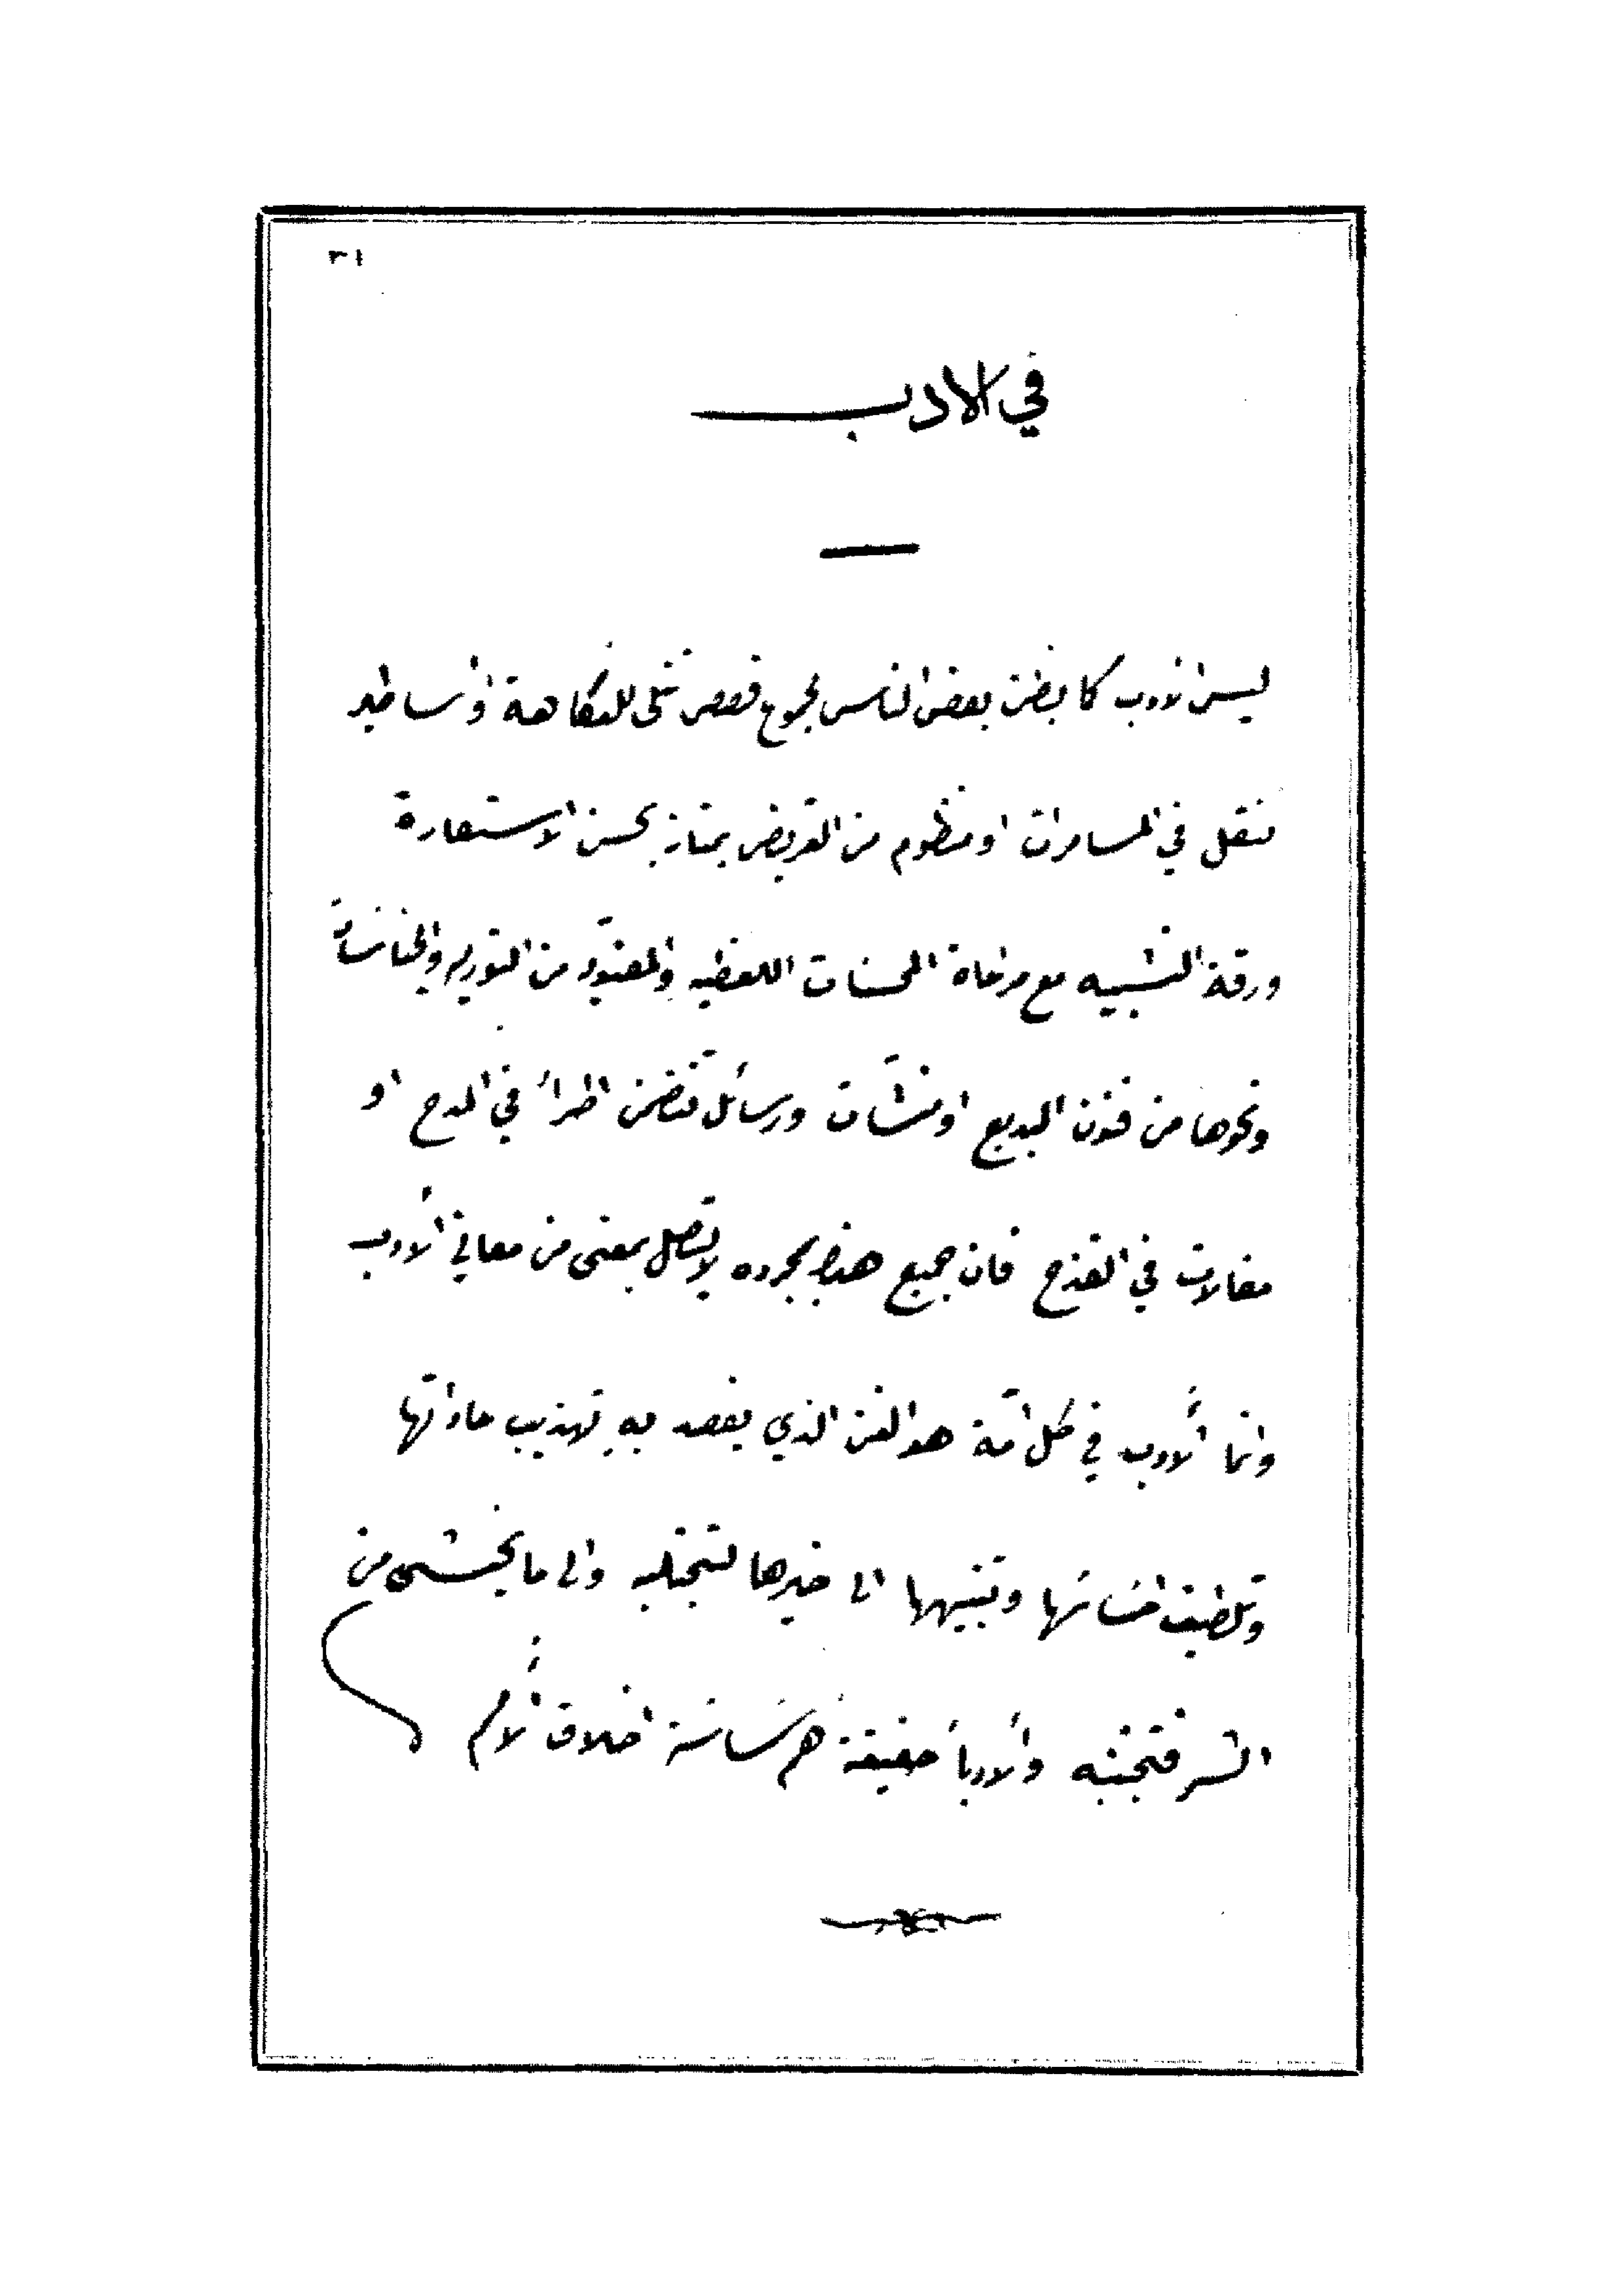 ٣١
في الادب
ليس الأدب كما يظن بعض الناس مجموع قصص تتلى للفكاهة او أساطير
تنقل في المسامرات او منظوم من القريض يمتاز بحسن الاستعارة
ورقة التشبيه مع مراعاة المحسنات اللفظيه والمعنويه من التوريه والجناسات
ونحوها من فنون البديع او منشآت ورسائل تتضمن اطراءً في المدح او
مغالات في القدح فان جميع هذا بمجرده لا يتصل بمعنى من معاني الأدب
وانما الأدب في كل امّة هو الفن الذي يقصد بهِ تهذيب عاداتها
وتلطيف احساساتها وتنبيهها الى خيرها لتجتلبه والى ما يخشى من
الشر فتجتنبه والأدباءُ حقيقة هم ساسة اخلاق الأمم